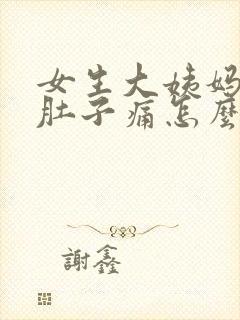 女生大姨妈
肚子痛怎麼
謝鑫